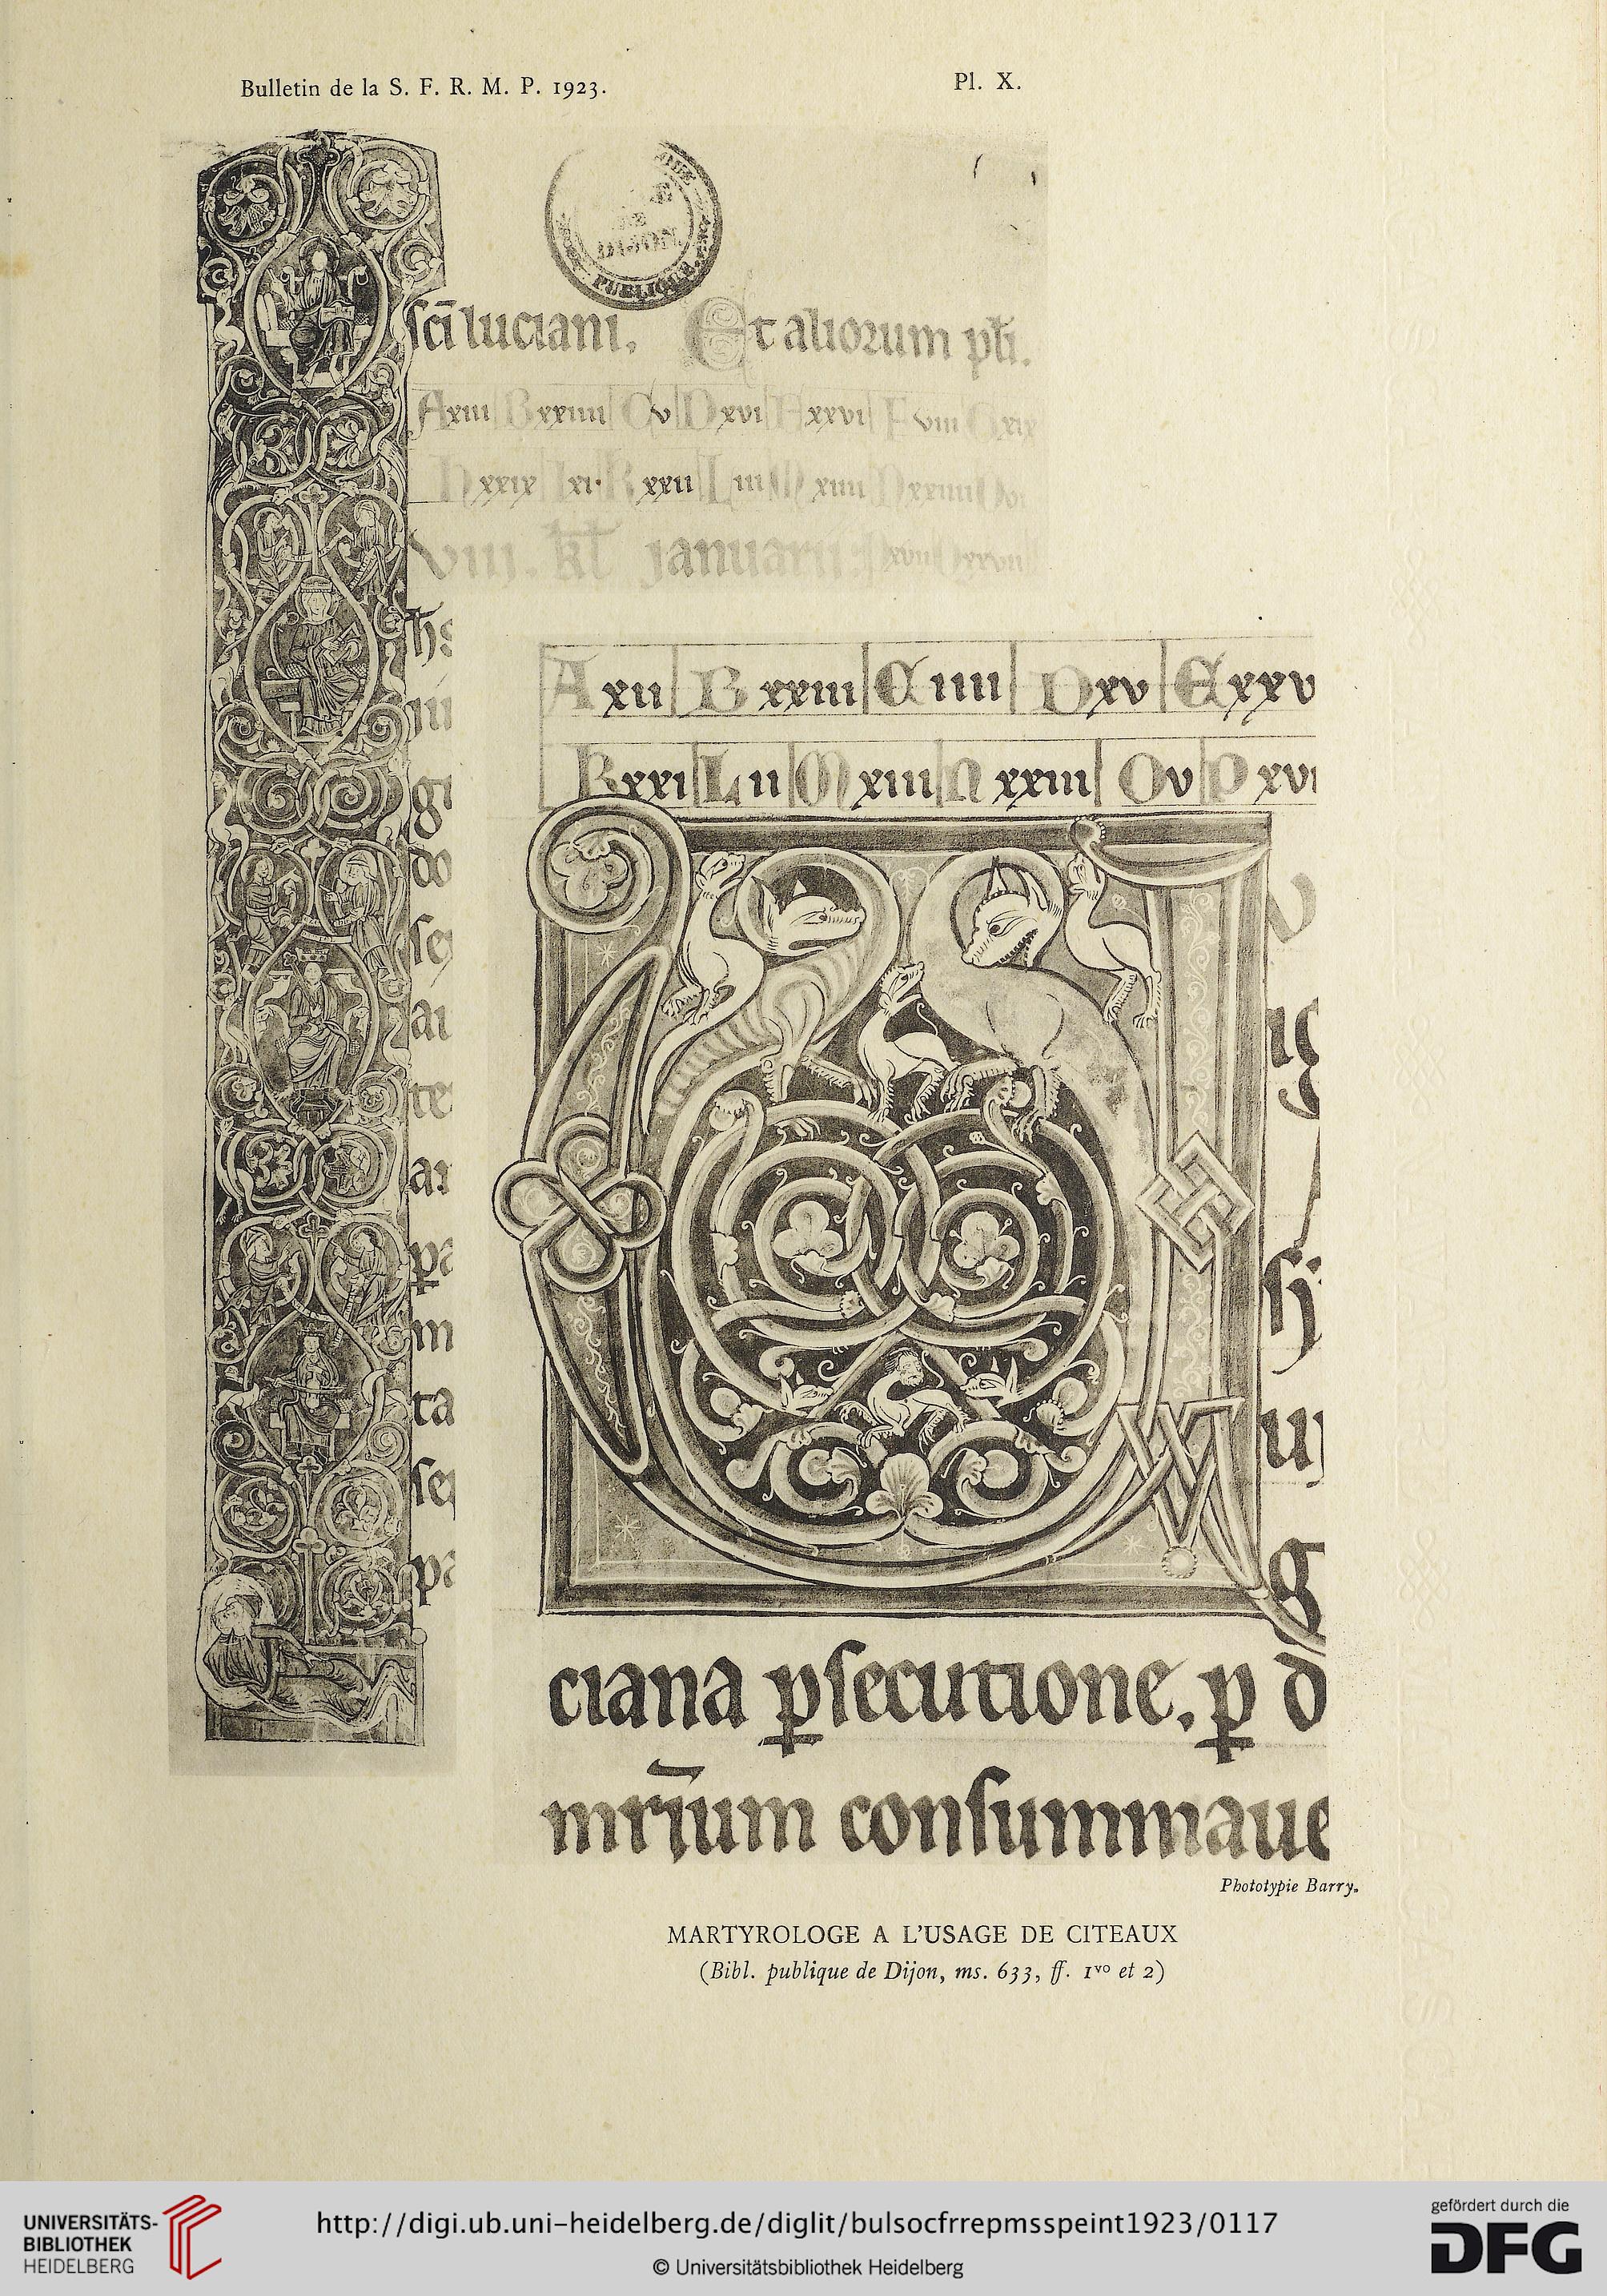 Bulletin de la S. F. R. M. P. 1923.
Pl. X.
DIJON
PUBLIQUE
sci luciani. Et aliorum pli.
A xiii B xxiiii C v D xvi E xxvi F viii G xix
H xxix I xi K xxii L iii M xiiii N xxiiii O v
viii. kl januarii. P xvii Q xxvii
ih's
gi
do
se
ai
te
ar
pa
m
ta
se
pa
A xii B xxiii C iiii D xv E xxv
K xxi L ii M xiii N xxiii O v P xvi
ciana psecutione, p d
mrium consummaue
Phototypie Barry.
MARTYROLOGE A L'USAGE DE CITEAUX
(Bibl. publique de Dijon, ms. 633, ff. 1vo et 2)
UNIVERSITÄTS-
BIBLIOTHEK
HEIDELBERG
http://digi.ub.uni-heidelberg.de/diglit/bulsocfrrepmsspeint1923/0117
© Universitätsbibliothek Heidelberg
gefördert durch die
DFG